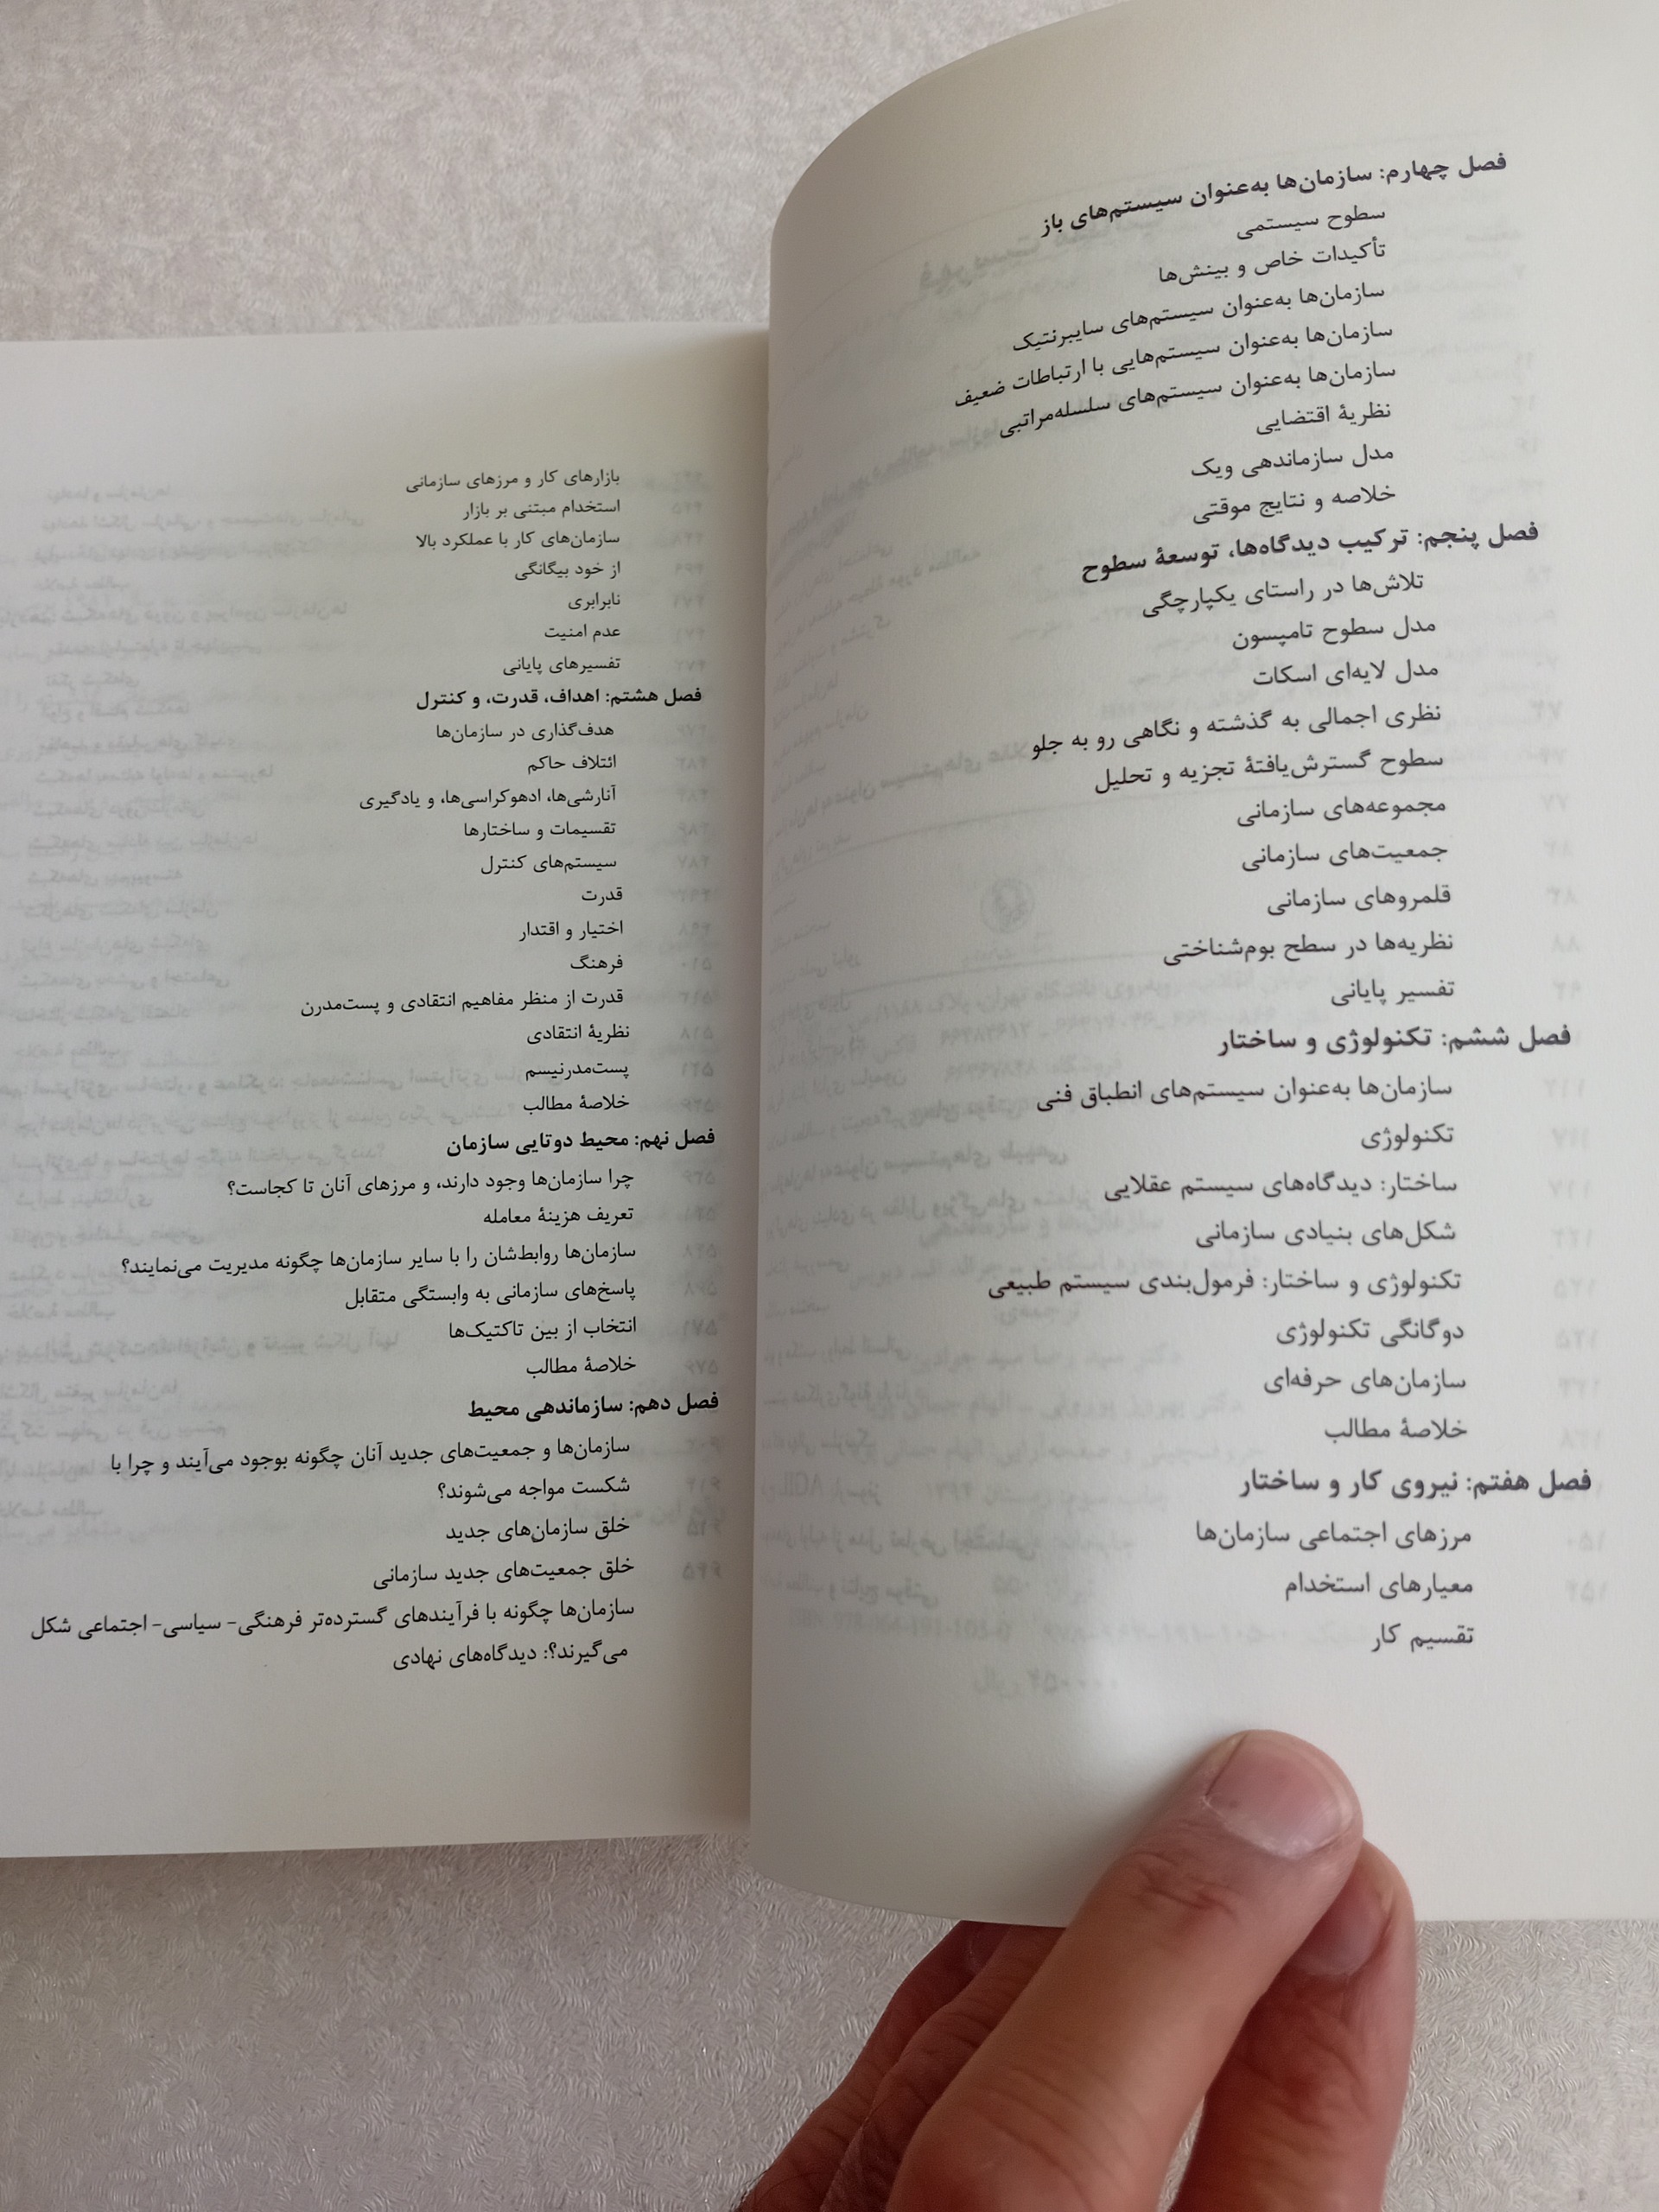 فصل چهارم: سازمان‌ها به‌عنوان سیستم‌های باز
سطوح سیستمی
تأکیدات خاص و بینش‌ها
سازمان‌ها به‌عنوان سیستم‌های سایبرنتیک
سازمان‌ها به‌عنوان سیستم‌هایی با ارتباطات ضعیف
سازمان‌ها به‌عنوان سیستم‌های سلسله‌مراتبی
نظریهٔ اقتضایی
مدل سازماندهی ویک
خلاصه و نتایج موقتی
فصل پنجم: ترکیب دیدگاه‌ها، توسعهٔ سطوح
تلاش‌ها در راستای یکپارچگی
مدل سطوح تامپسون
مدل لایه‌ای اسکات
نظری اجمالی به گذشته و نگاهی رو به جلو
سطوح گسترش‌یافتهٔ تجزیه و تحلیل
مجموعه‌های سازمانی
جمعیت‌های سازمانی
قلمروهای سازمانی
نظریه‌ها در سطح بوم‌شناختی
تفسیر پایانی
فصل ششم: تکنولوژی و ساختار
سازمان‌ها به‌عنوان سیستم‌های انطباق فنی
تکنولوژی
ساختار: دیدگاه‌های سیستم عقلایی
شکل‌های بنیادی سازمانی
تکنولوژی و ساختار: فرمول‌بندی سیستم طبیعی
دوگانگی تکنولوژی
سازمان‌های حرفه‌ای
خلاصهٔ مطالب
فصل هفتم: نیروی کار و ساختار
مرزهای اجتماعی سازمان‌ها
معیارهای استخدام
تقسیم کار
بازارهای کار و مرزهای سازمانی
استخدام مبتنی بر بازار
سازمان‌های کار با عملکرد بالا
از خود بیگانگی
نابرابری
عدم امنیت
تفسیرهای پایانی
فصل هشتم: اهداف، قدرت، و کنترل
هدف‌گذاری در سازمان‌ها
ائتلاف حاکم
آنارشی‌ها، ادهوکراسی‌ها، و یادگیری
تقسیمات و ساختارها
سیستم‌های کنترل
قدرت
اختیار و اقتدار
فرهنگ
قدرت از منظر مفاهیم انتقادی و پست‌مدرن
نظریهٔ انتقادی
پست‌مدرنیسم
خلاصهٔ مطالب
فصل نهم: محیط دوتایی سازمان
چرا سازمان‌ها وجود دارند، و مرزهای آنان تا کجاست؟
تعریف هزینهٔ معامله
سازمان‌ها روابط‌شان را با سایر سازمان‌ها چگونه مدیریت می‌نمایند؟
پاسخ‌های سازمانی به وابستگی متقابل
انتخاب از بین تاکتیک‌ها
خلاصهٔ مطالب
فصل دهم: سازماندهی محیط
سازمان‌ها و جمعیت‌های جدید آنان چگونه بوجود می‌آیند و چرا با
شکست مواجه می‌شوند؟
خلق سازمان‌های جدید
خلق جمعیت‌های جدید سازمانی
سازمان‌ها چگونه با فرآیندهای گسترده‌تر فرهنگی- سیاسی- اجتماعی شکل
می‌گیرند؟: دیدگاه‌های نهادی